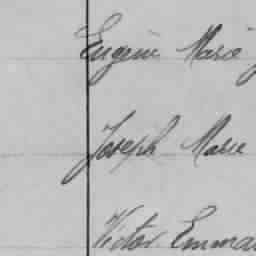 Eugène Marie
Joseph Marie
Victor Emma